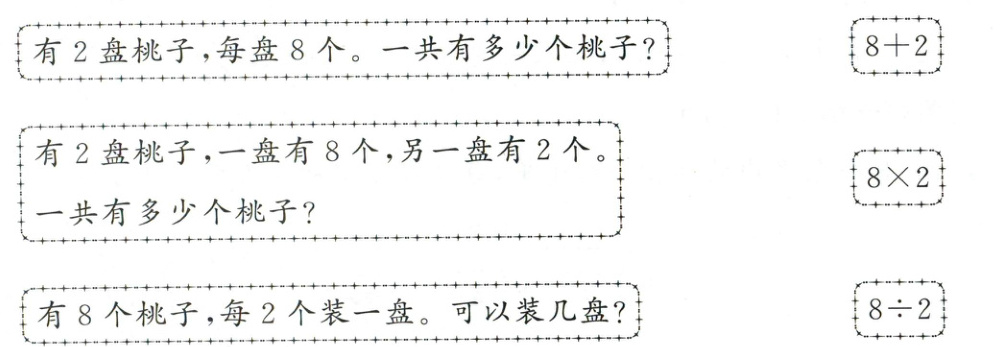 有2盘桃子,每盘8个。一共有多少个桃子?
8+2
有2盘桃子,一盘有8个,另一盘有2个。
一共有多少个桃子?
8×2
有8个桃子,每2个装一盘。可以装几盘?
8÷2